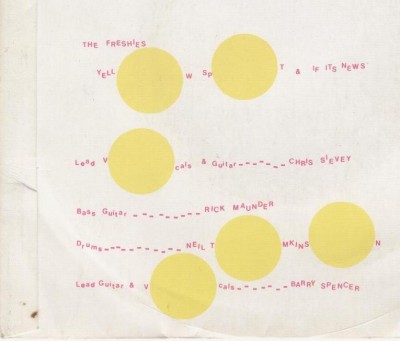 THE FRESHIES
YELLOW SPOT & IF ITS NEWS
Lead VOcals & Guitar-------CHRIS SIEVEY
Bass Guitar --------RICK MAUNDER
Drums---------NEIL TOMKINSON
Lead Guitar & VOcals------BARRY SPENCER